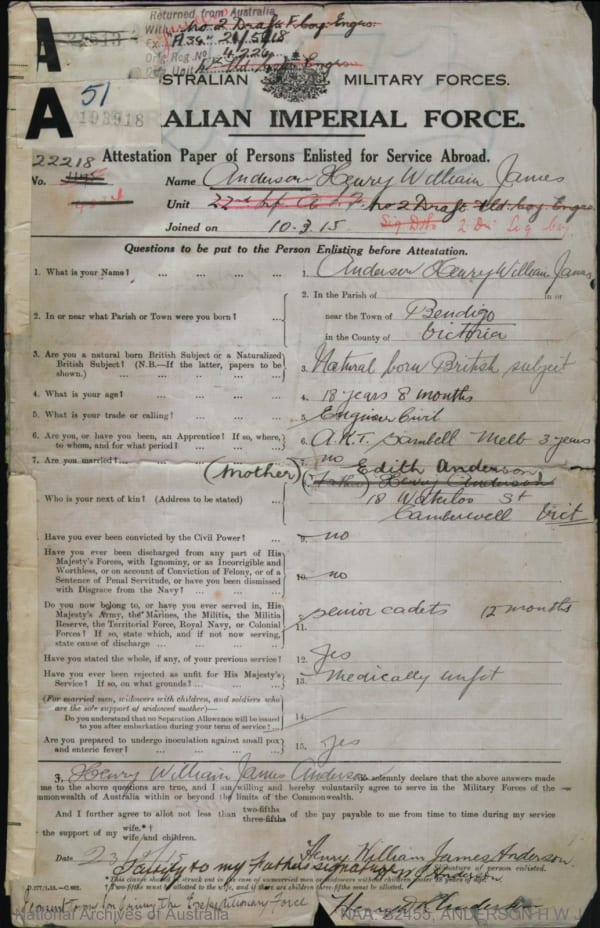 Returned from Australia
With No 2 Draft F. Coy. Engrs.
Ex "A34" 21/5/18
Org. Reg. No 4224
Unit
A 22513
AUSTRALIAN MILITARY FORCES.
A 51 193918
ALIAN IMPERIAL FORCE.
Attestation Paper of Persons Enlisted for Service Abroad.
22218
No.
Name Anderson Henry William James
Unit 22nd Inf A.I.F. No 2 Draft Fld Coy Engrs
Joined on 10.3.15
Questions to be put to the Person Enlisting before Attestation.
1. What is your Name? ... ... ... ... 1. Anderson Henry William James
2. In or near what Parish or Town were you born? ... 2. In the Parish of in or
near the Town of Bendigo
in the County of Victoria
3. Are you a natural born British Subject or a Naturalized British Subject? (N.B.—If the latter, papers to be shown.) ... 3. Natural born British subject
4. What is your age? ... 4. 18 years 8 months
5. What is your trade or calling? ... 5. Engineer Civil
6. Are you, or have you been, an Apprentice? If so, where, to whom, and for what period? ... 6. A.K.T. Sambell Melb 3 years
7. Are you married? ... 7. no
(Mother) Edith Anderson
(Father) Henry Anderson
Who is your next of kin? (Address to be stated) ... 18 Waterloo St
Camberwell Vict
Have you ever been convicted by the Civil Power? ... 9. no
Have you ever been discharged from any part of His Majesty's Forces, with Ignominy, or as Incorrigible and Worthless, or on account of Conviction of Felony, or of a Sentence of Penal Servitude, or have you been dismissed with Disgrace from the Navy? ... 10. no
Do you now belong to, or have you ever served in, His Majesty's Army, the Marines, the Militia, the Militia Reserve, the Territorial Force, Royal Navy, or Colonial Forces? If so, state which, and if not now serving, state cause of discharge ... 11. senior cadets 12 months
Have you stated the whole, if any, of your previous service? 12. Yes
Have you ever been rejected as unfit for His Majesty's Service? If so, on what grounds? ... 13. medically unfit
(For married men, widowers with children, and soldiers who are the sole support of widowed mother)—
Do you understand that no Separation Allowance will be issued to you after embarkation during your term of service? ... 14.
Are you prepared to undergo inoculation against small pox and enteric fever? ... 15. yes
I, Henry William James Anderson do solemnly declare that the above answers made
me to the above questions are true, and I am willing and hereby voluntarily agree to serve in the Military Forces of the
mmonwealth of Australia within or beyond the limits of the Commonwealth.
And I further agree to allot not less than two-fifths three-fifths of the pay payable to me from time to time during my service
the support of my wife.*† wife and children.
Date Henry William James Anderson
Signature of person enlisted.
Testify to my father's signature
*This clause should be struck out in the case of unmarried men or widowers without children under
†Two-fifths must be allotted to the wife, and if there are children three-fifths must be allotted.
Consent to my son joining the Expeditionary Force
National Archives of Australia
NAA: B2455, ANDERSON H W J